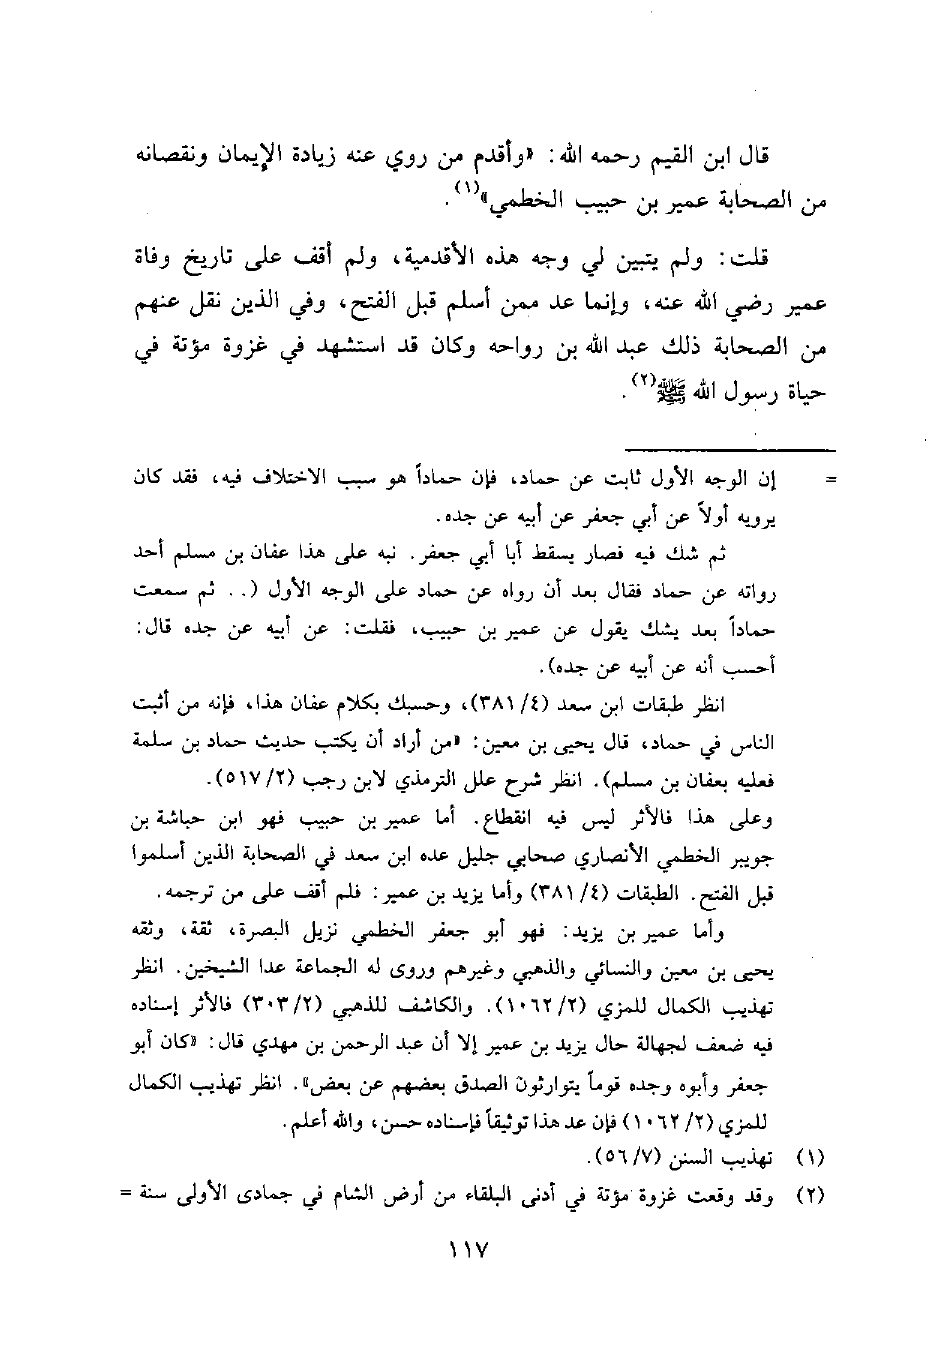 قال ابن القيم رحمه الله: «وأقدم من روي عنه زيادة الإيمان ونقصانه
من الصحابة عمير بن حبيب الخطمي»(١).
قلت: ولم يتبين لي وجه هذه الأقدمية، ولم أقف على تاريخ وفاة
عمير رضي الله عنه، وإنما عد ممن أسلم قبل الفتح، وفي الذين نقل عنهم
من الصحابة ذلك عبد الله بن رواحه وكان قد استشهد في غزوة مؤتة في
حياة رسول الله ﷺ(٢).
= إن الوجه الأول ثابت عن حماد، فإن حماداً هو سبب الاختلاف فيه، فقد كان
يرويه أولاً عن أبي جعفر عن أبيه عن جده.
ثم شك فيه فصار يسقط أبا أبي جعفر. نبه على هذا عفان بن مسلم أحد
رواته عن حماد فقال بعد أن رواه عن حماد على الوجه الأول (.. ثم سمعت
حماداً بعد يشك يقول عن عمير بن حبيب، فقلت: عن أبيه عن جده قال:
أحسب أنه عن أبيه عن جده).
انظر طبقات ابن سعد (٣٨١/٤)، وحسبك بكلام عفان هذا، فإنه من أثبت
الناس في حماد، قال يحيى بن معين: «من أراد أن يكتب حديث حماد بن سلمة
فعليه بعفان بن مسلم). انظر شرح علل الترمذي لابن رجب (٥١٧/٢).
وعلى هذا فالأثر ليس فيه انقطاع. أما عمير بن حبيب فهو ابن حباشة بن
جويبر الخطمي الأنصاري صحابي جليل عده ابن سعد في الصحابة الذين أسلموا
قبل الفتح. الطبقات (٣٨١/٤) وأما يزيد بن عمير: فلم أقف على من ترجمه.
وأما عمير بن يزيد: فهو أبو جعفر الخطمي نزيل البصرة، ثقة، وثقه
يحيى بن معين والنسائي والذهبي وغيرهم وروى له الجماعة عدا الشيخين. انظر
تهذيب الكمال للمزي (١٠٦٢/٢). والكاشف للذهبي (٣٠٣/٢) فالأثر إسناده
فيه ضعف لجهالة حال يزيد بن عمير إلا أن عبد الرحمن بن مهدي قال: «كان أبو
جعفر وأبوه وجده قوماً يتوارثون الصدق بعضهم عن بعض». انظر تهذيب الكمال
للمزي (١٠٦٢/٢) فإن عد هذا توثيقاً فإسناده حسن، والله أعلم.
(١) تهذيب السنن (٥٦/٧).
(٢) وقد وقعت غزوة مؤتة في أدنى البلقاء من أرض الشام في جمادى الأولى سنة =
١١٧